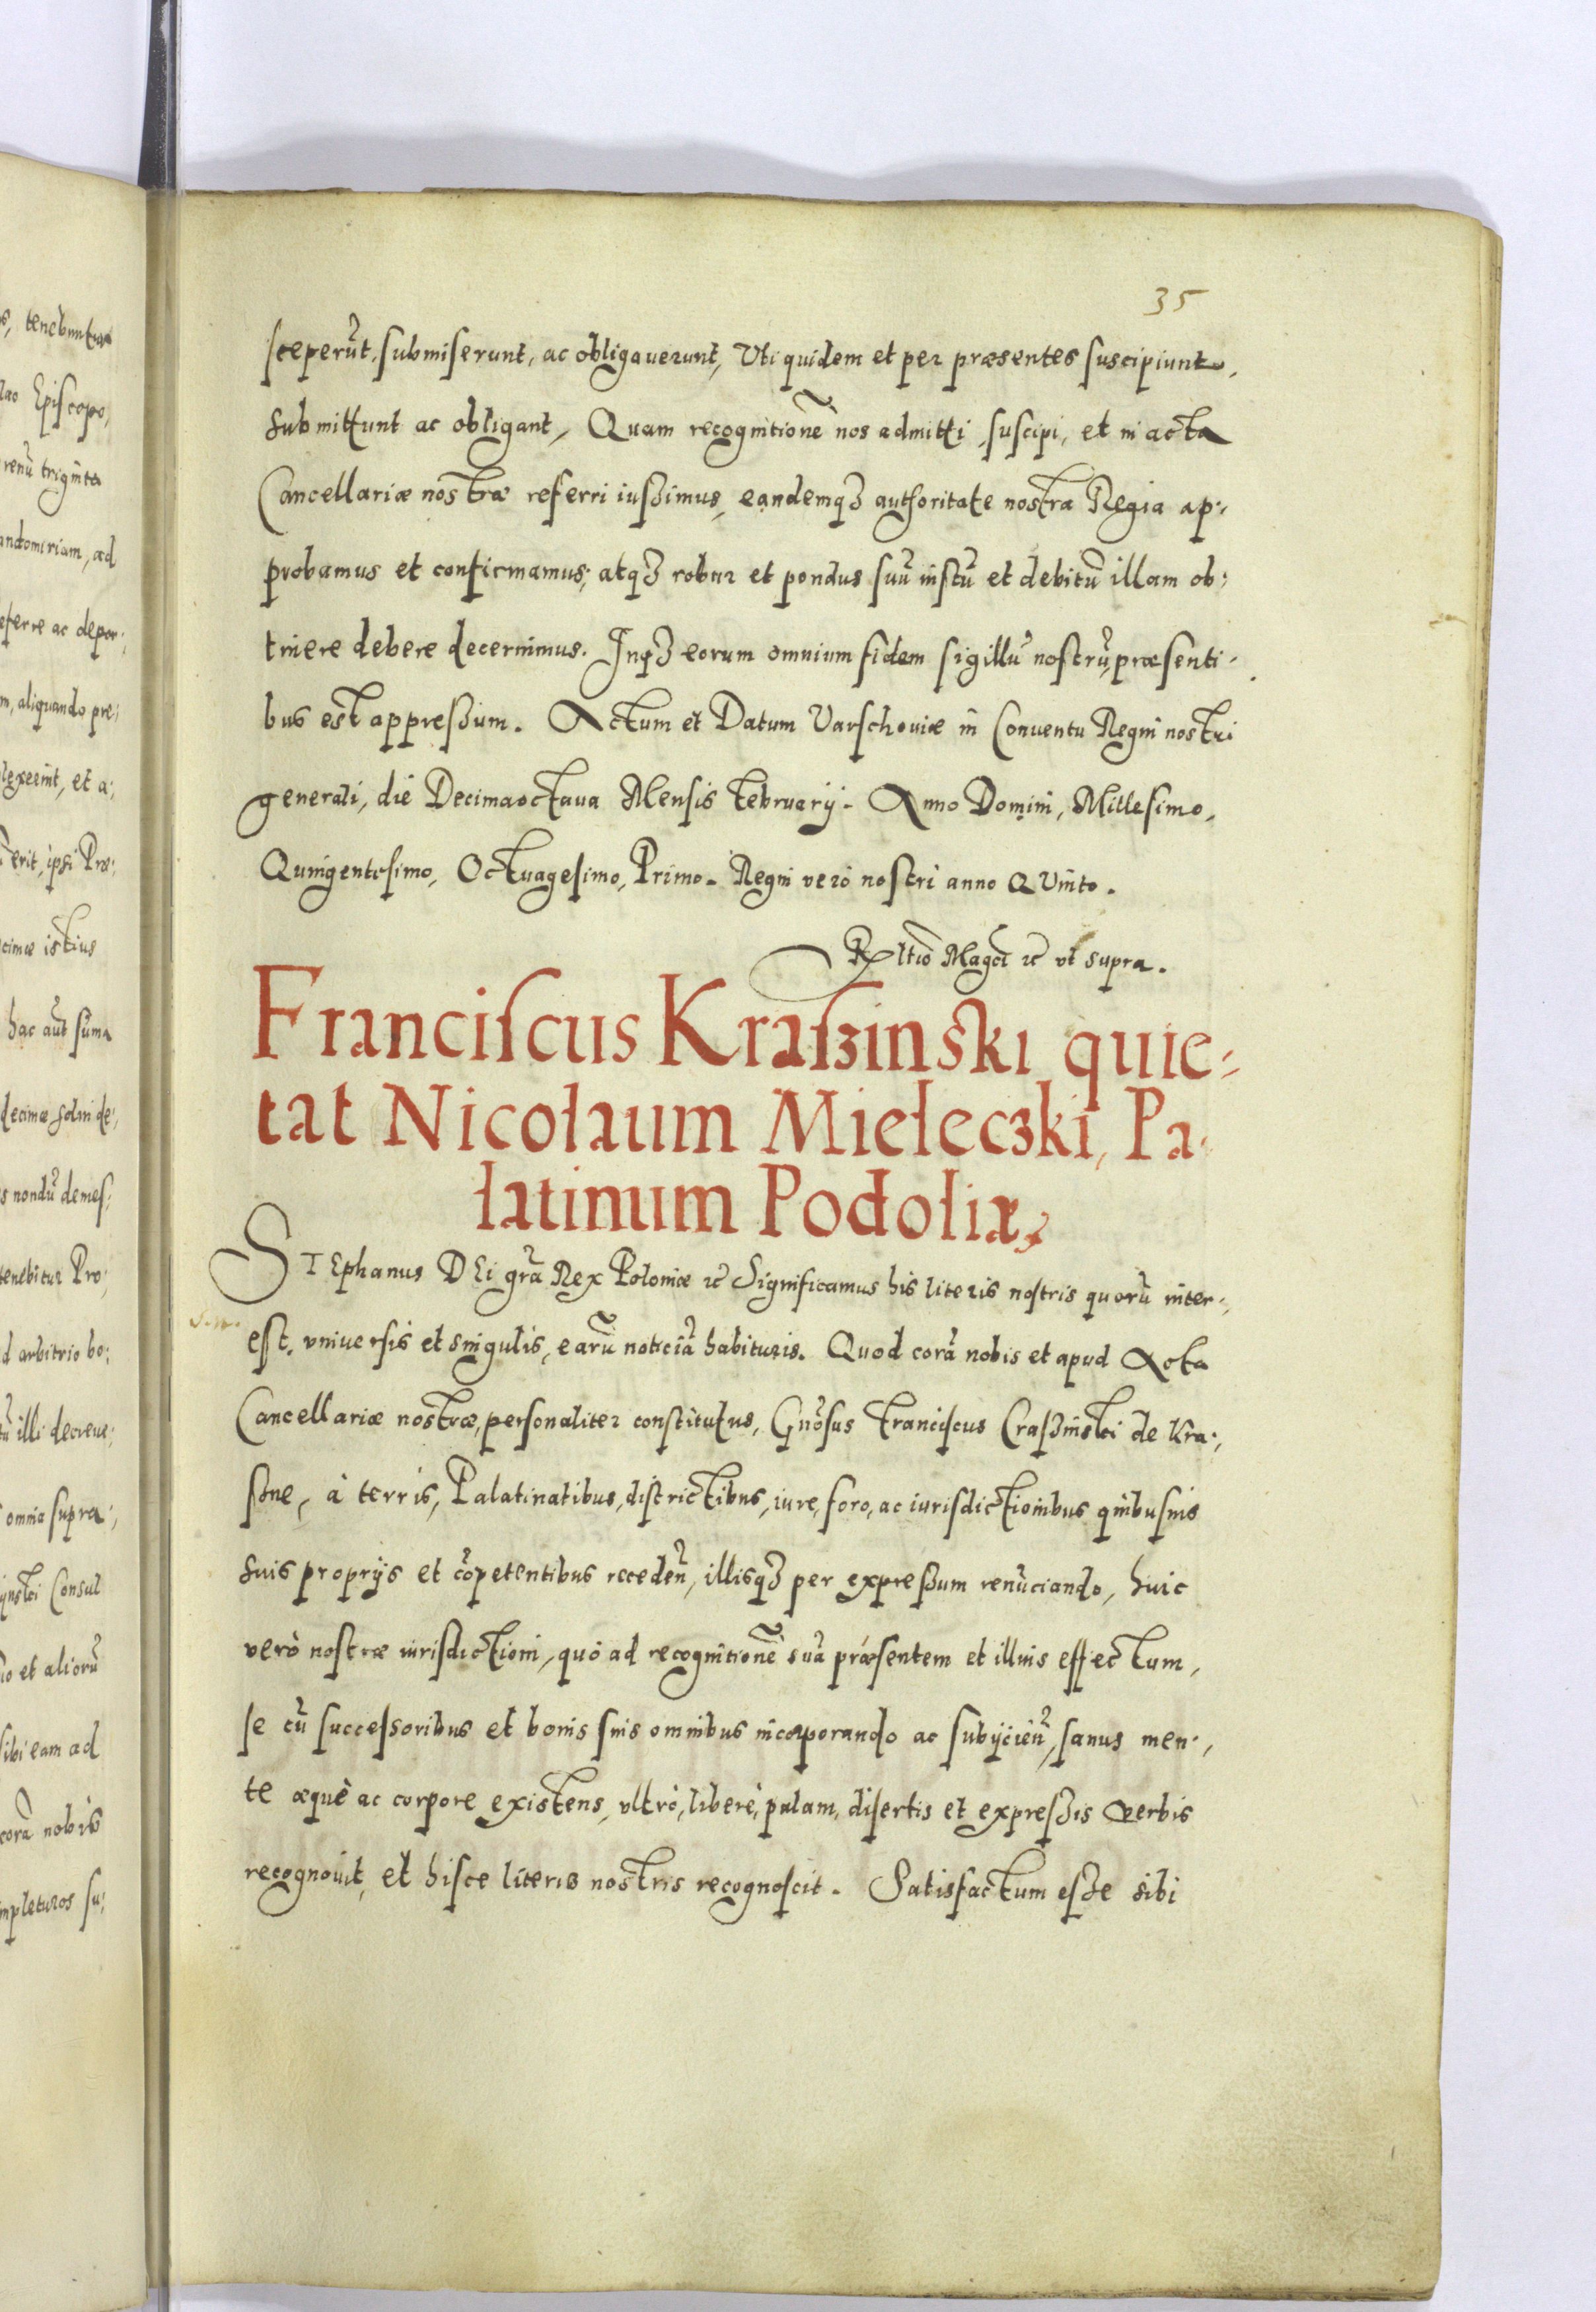 35
sceperũt, submiserunt, ac obligauerunt, Vti quidem et per præsentes suscipiunt,
submittunt ac obligant, Quam recognitionẽ nos admitti, suscipi, et in acta
Cancellariæ nostræ referri iussimus, eandemqȝ authoritate nostra Regia ap-
probamus et confirmamus; atqȝ robur et pondus suũ iustũ et debitũ illam ob-
tinere debere decernimus. Inqȝ eorum omnium fidem sigillũ nostrũ, præsenti-
bus est appressum. Actum et Datum Varschouiæ in Conuentu Regni nostri
generali, die Decimaoctaua Mensis Februarij. Anno Domini, Millesimo,
Quingentesimo, Octuagesimo, Primo. Regni verò nostri anno QVinto.
Rltiõ Magci ꝛc vt supra.
Franciscus Kraszinski quie-
tat Nicolaum Mieleczki, Pa-
latinum Podoliæ,
STEphanus DEi grã Rex Poloniæ ꝛc Significamus his literis nostris quorũ inter-
est, vniuersis et singulis, earũ noticiã habituris. Quod corã nobis et apud Acta
Cancellariæ nostræ, personaliter constitutus, Gñosus Franciscus Craszinski de Kra-
szne, à terris, Palatinatibus, districtibus, iure, foro, ac iurisdictionibus quibusuis
suis proprijs et cõpetentibus recedeñ, illisqȝ per expressum renũciando, huic
verò nostræ iurisdictioni, quò ad recognitionẽ suã præsentem et illius effectum,
se cũ successoribus et bonis suis omnibus incorporando ac subijcieñ, sanus men-
te æquè ac corpore existens, vltrò, liberè, palam, disertis et expressis verbis
recognouit, et hisce literis nostris recognoscit. Satisfactum esse sibi